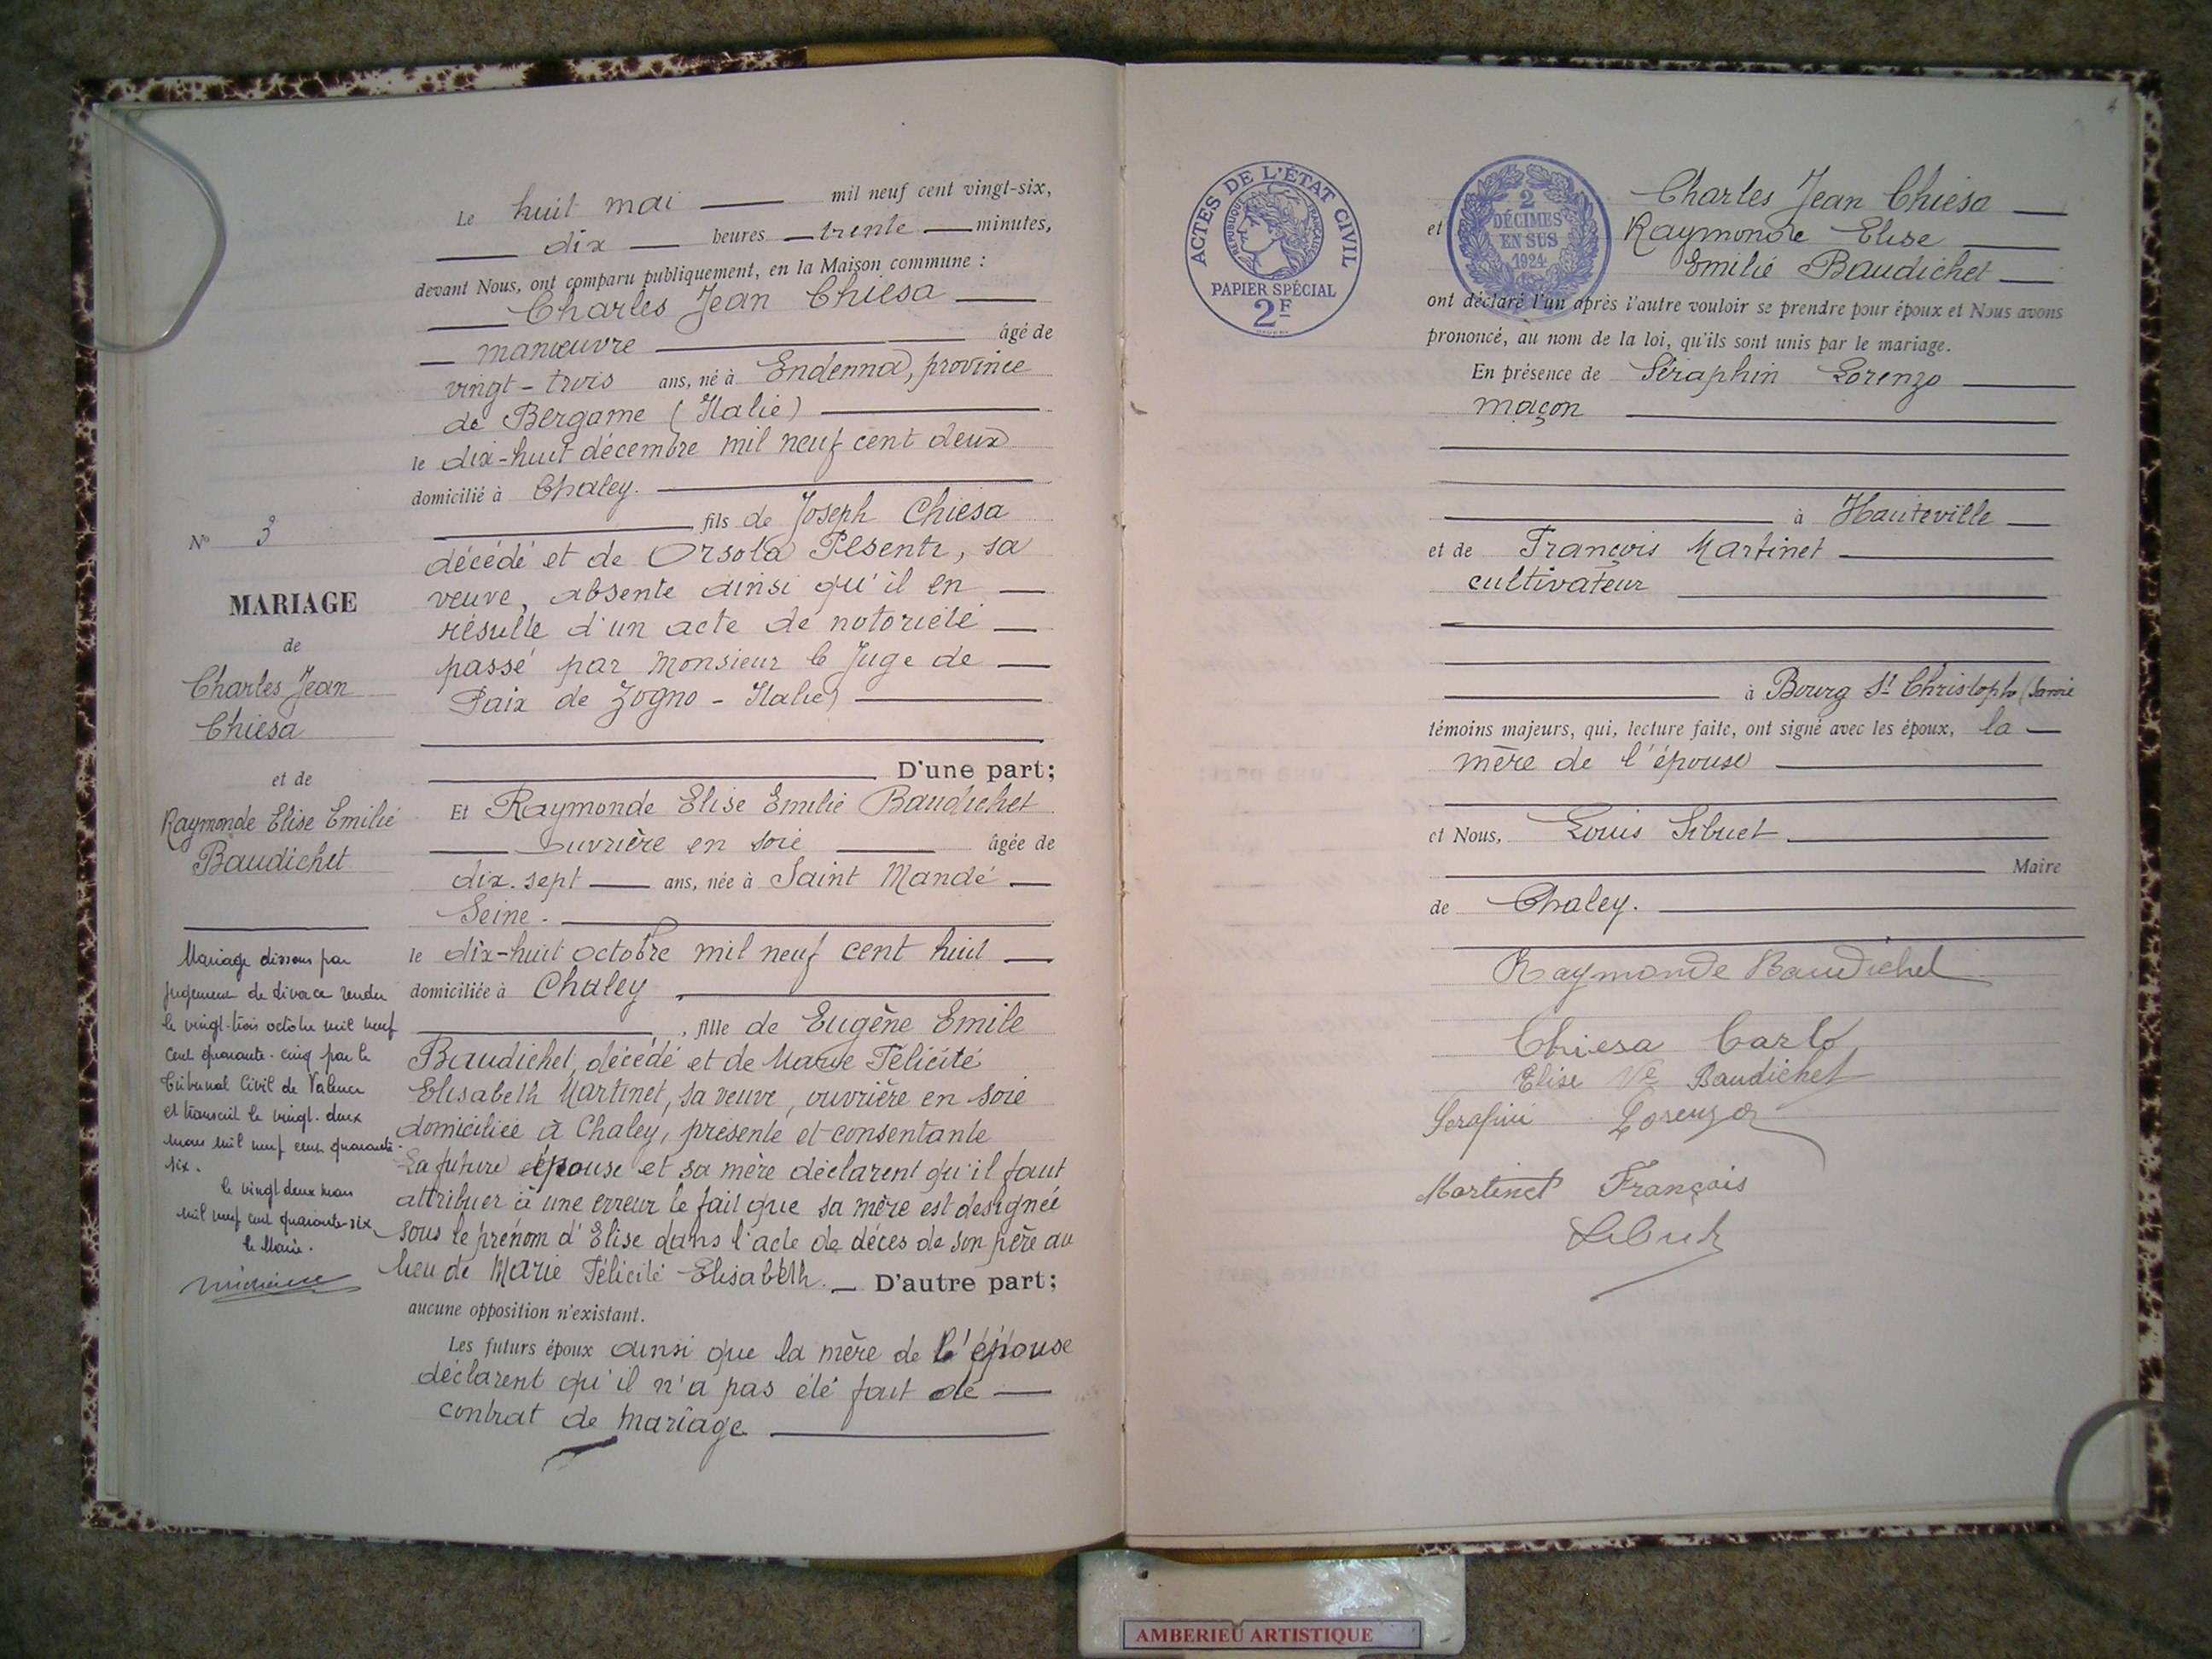 Le huit mai mil neuf cent vingt-six,
dix heures trente minutes,
devant Nous, ont comparu publiquement, en la Maison commune :
Charles Jean Chiesa
manœuvre âgé de
vingt-trois ans, né à Endenna, province
de Bergame (Italie)
le dix-huit décembre mil neuf cent deux
domicilié à Chaley.
fils de Joseph Chiesa
décédé et de Orsola Pesenti, sa
veuve, absente ainsi qu'il en
résulte d'un acte de notoriété
passé par Monsieur le Juge de
Paix de Zogno - Italie)
D'une part;
Et Raymonde Elise Emilie Baudichet
ouvrière en soie âgée de
dix-sept ans, née à Saint Mandé
Seine.
le dix-huit octobre mil neuf cent huit
domiciliée à Chaley
, fille de Eugène Emile
Baudichet, décédé et de Marie Félicité
Elisabeth Martinet, sa veuve, ouvrière en soie
domiciliée à Chaley, présente et consentante
La future épouse et sa mère déclarent qu'il faut
attribuer à une erreur le fait que sa mère est designée
sous le prénom d'Elise dans l'acte de décès de son père au
lieu de Marie Félicité Elisabeth. D'autre part;
aucune opposition n'existant.
Les futurs époux ainsi que la mère de l'épouse
déclarent qu'il n'a pas été fait de
contrat de mariage
N° 3
MARIAGE
de
Charles Jean
Chiesa
et de
Raymonde Elise Emilie
Baudichet
Mariage dissous par
jugement de divorce rendu
le vingt-trois octobre mil neuf
cent quarante-cinq par le
Tribunal Civil de Valence
et transcrit le vingt-deux
mars mil neuf cent quarante-
six.
le vingt deux mars
mil neuf cent quarante-six
le Maire.
ACTES DE L'ÉTAT CIVIL
RÉPUBLIQUE FRANÇAISE
PAPIER SPÉCIAL
2F
2
DÉCIMES
EN SUS
1924
Charles Jean Chiesa
et Raymonde Elise
Emilie Baudichet
ont déclaré l'un après l'autre vouloir se prendre pour époux et Nous avons
prononcé, au nom de la loi, qu'ils sont unis par le mariage.
En présence de Séraphin Lorenzo
maçon
à Hauteville
et de François Martinet
cultivateur
à Bourg St Christophe (Savoie
témoins majeurs, qui, lecture faite, ont signé avec les époux, la
mère de l'épouse
et Nous, Louis Sibuet
Maire
de Chaley.
Raymonde Baudichet
Chiesa Carlo
Elise Ve Baudichet
Serafini Lorenzo
Martinet François
Sibuet
AMBERIEU ARTISTIQUE